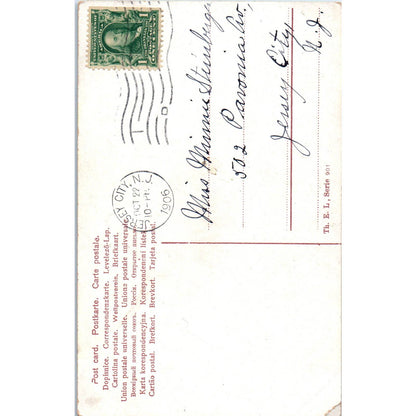 Post card. Postkarte. Carte postale.
Dopisnice. Correspondenzkarte. Levelező-Lap.
Cartolina postale. Weltpostverein. Briefkaart.
Union postale universelle. Unione postale universale.
Всемірный почтовый союзъ. Россія. Открытое письмо.
Karta korespondencyjna. Korespondencini listek.
Cartão postal. Brefkort. Brevkort. Tarjeta postal.
JERSEY CITY, N.J.
OCT 22
10 PM
1906
Miss Minnie Steinburg
502 Pavonia Av.
Jersey City
N. J.
Th. E. L., Serie 901